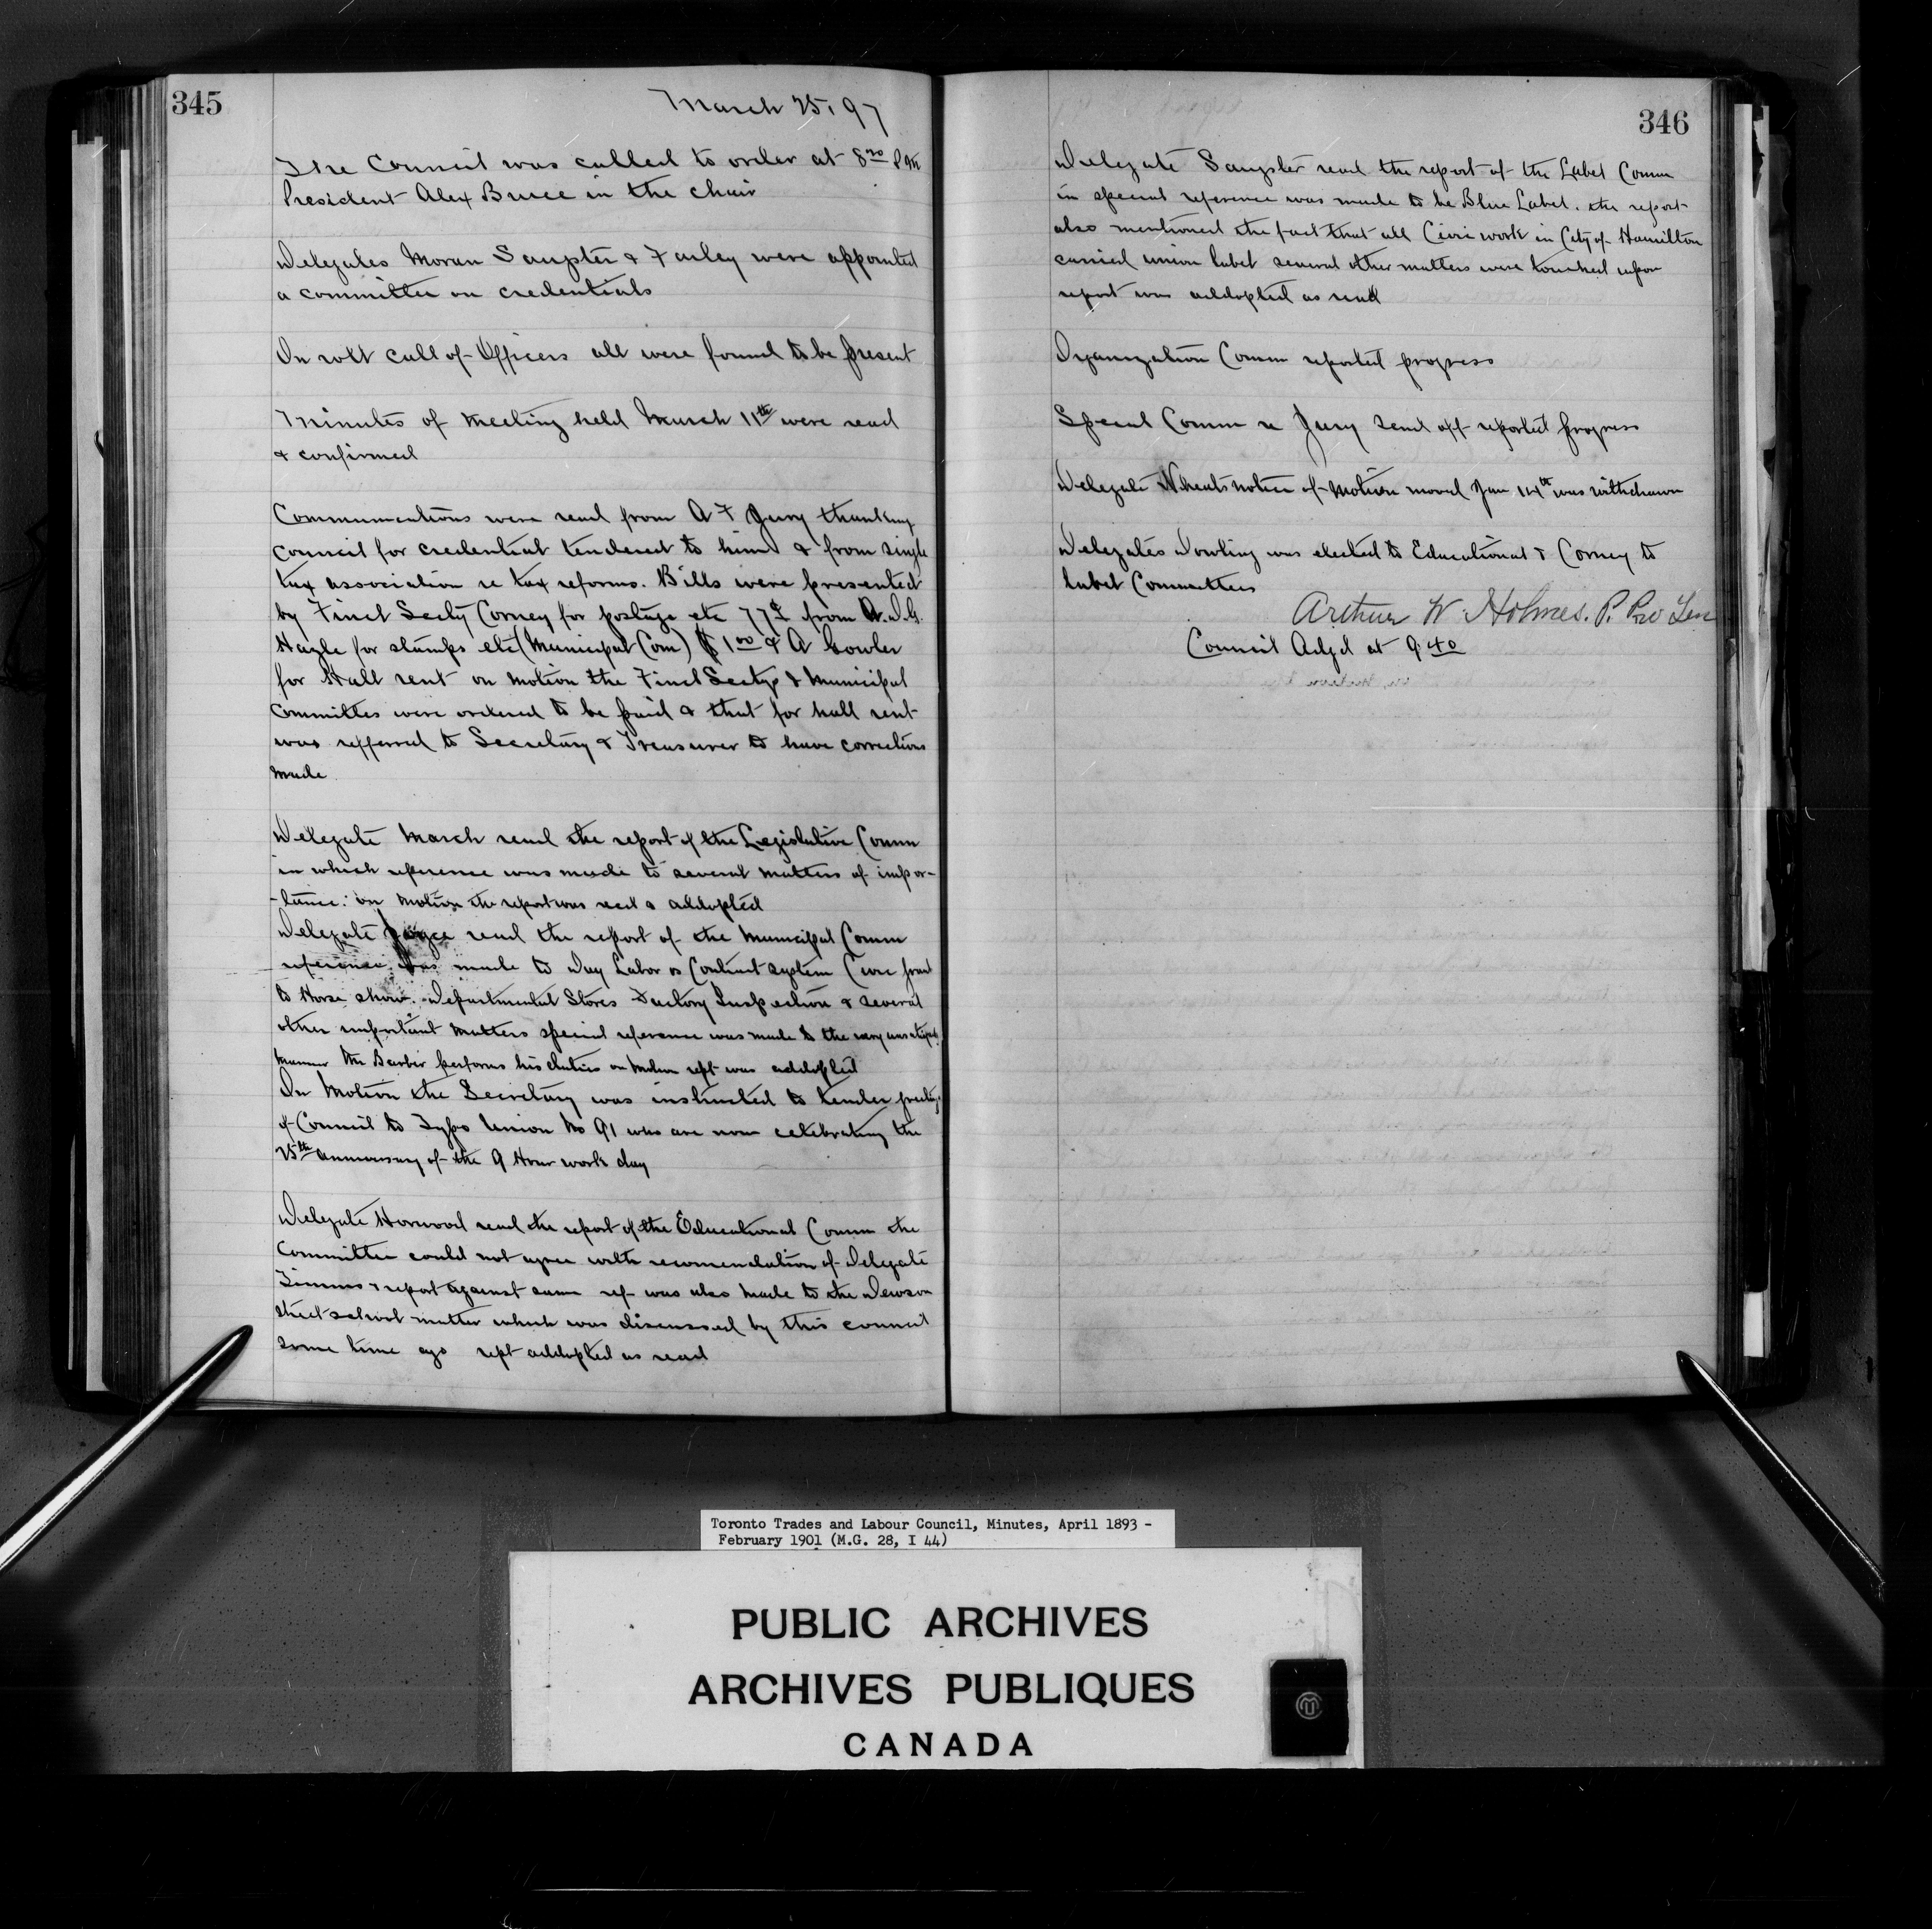 345
March 25, 97
The Council was called to order at 8 Pm
President Alex Bruce in the chair
Delegates Moran Sangster & Farley were appointed
a committee on credentials
On roll call of Officers all were found to be present
Minutes of meeting held March 11th were read
& confirmed
Communications were read from A F Jury thanking
Council for credential tendered to him & from single
tax association re tax reforms. Bills were presented
by Fincl Secty Corney for postage etc 77¢ from D.G.
Hazle for stamps etc (Municipal Com) $1.00 & A Gowler
for Hall rent on motion the Fincl Sectys & Municipal
Committes were ordered to be paid & that for hall rent
was refferred to Secretary & Treasurer to have corrections
made
Delegate March read the report of the Legislative Comm
in which reference was made to several matters of impor-
-tance. on motion the report was read & addopted
Delegate Joyce read the report of the Municipal Comm
reference was made to Day Labor vs Contract system Civic grant
to Horse show. Departmental Stores Factory Inspection & several
other important matters special reference was made to the very
manner Mr Barber performs his duties on motion rept was addopted
On Motion the Secretary was instructed to tender greetings
of Council to Typo Union No 91 who are now celebrating the
25th anniversary of the 9 Hour work day
Delegate Horwood read the report of the Educational Comm the
Committee could not agree with recomendation of Delegate
Timms & report against same ref was also made to the Dewson
street school matter which was discussed by this council
some time ago rept addopted as read
346
Delegate Sangster read the report of the Label Comm
in special reference was made to be Blue Label. the report
also mentioned the fact that all Civic work in City of Hamilton
carried union label several other matters were touched upon
report was addopted as read
Organization Comm reported progress
Special Comm re Jury send off reported progress
Delegate Wheats notice of motion moved Jan 14th was withdrawn
Delegates Dowling was elected to Educational & Corney to
Label Committees
Arthur W Holmes. P. Pro Tem
Council Adgd at 9.40
Toronto Trades and Labour Council, Minutes, April 1893 -
February 1901 (M.G. 28, I 44)
PUBLIC ARCHIVES
ARCHIVES PUBLIQUES
CANADA